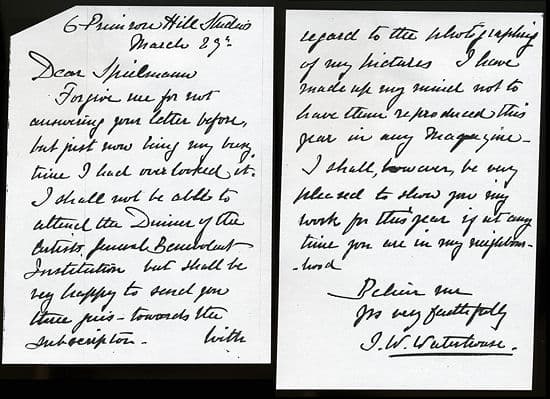 6 Primrose Hill Studios
March 29th
Dear Spielmann
Forgive me for not
answering your letter before,
but just now being my busy
time I had overlooked it.
I shall not be able to
attend the Dinner of the
Artists General Benevolent
Institution but shall be
very happy to send you
three gns - towards the
subscription - With
regard to the photographing
of my pictures I have
made up my mind not to
have them reproduced this
year in any Magazine -
I shall, however, be very
pleased to show you my
work for this year if at any
time you are in my neighbour-
-hood
Believe me
Yrs very faithfully
J. W. Waterhouse.